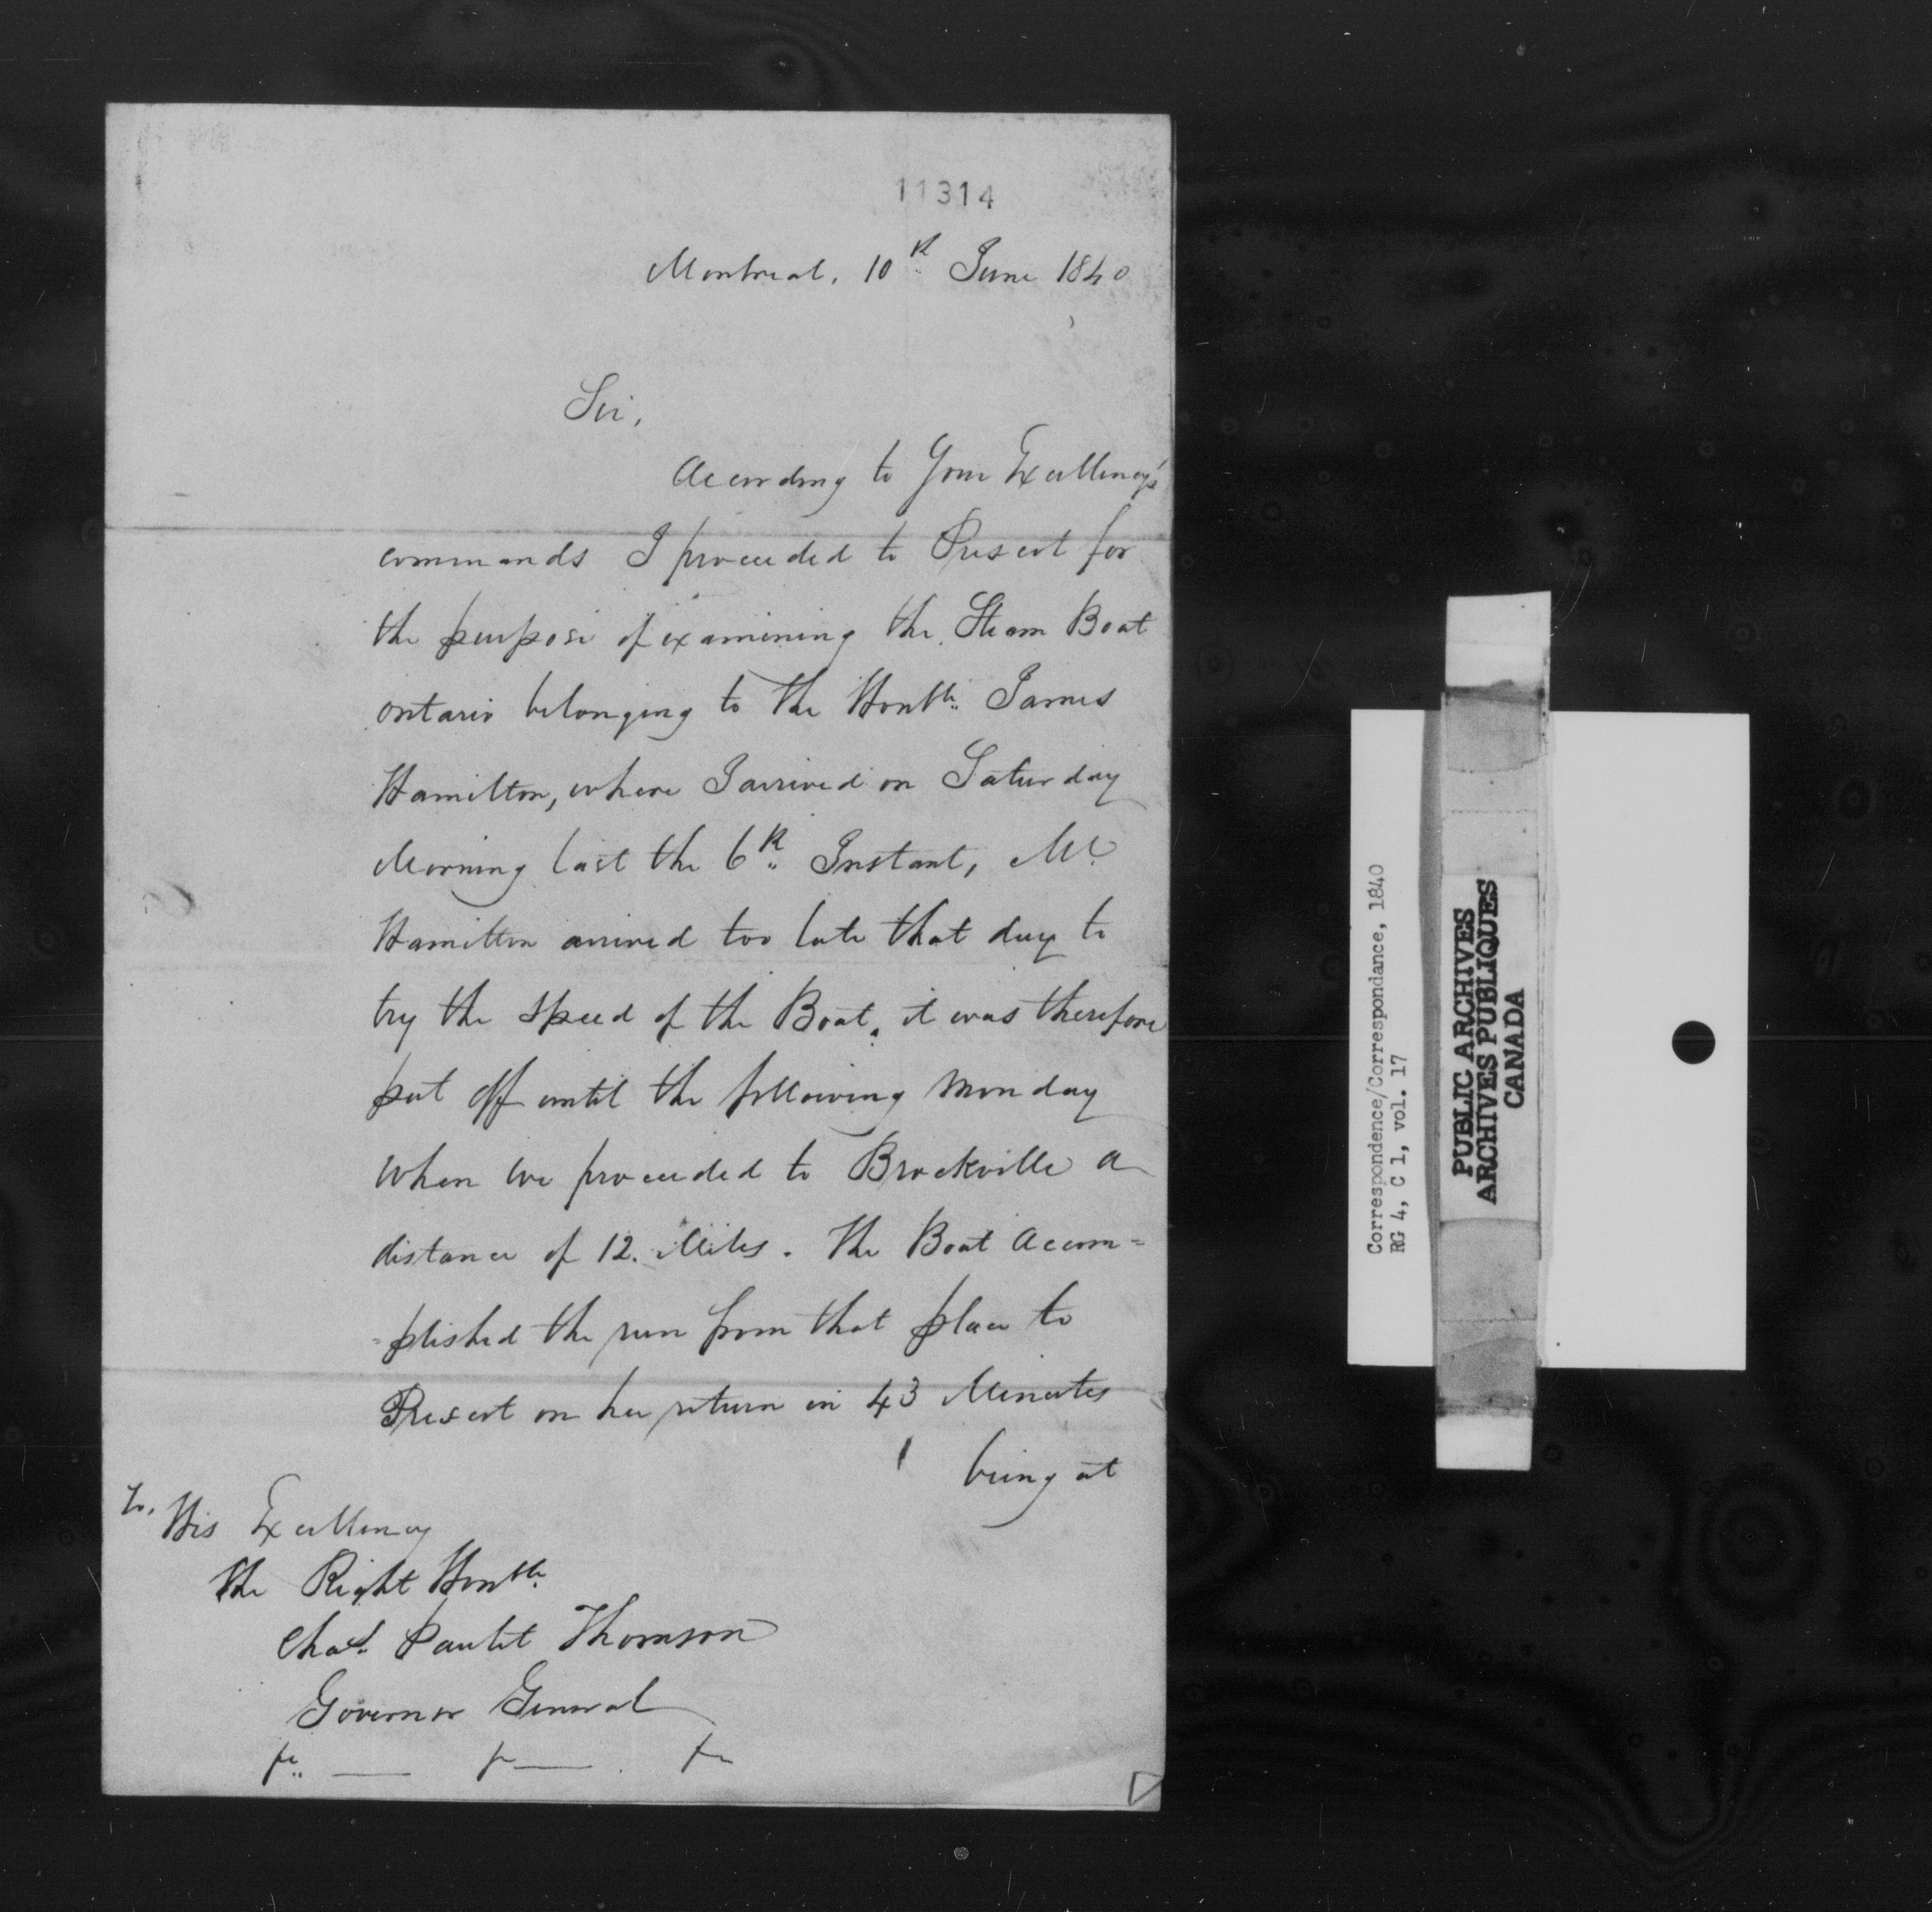 11314
Montreal, 10th June 1840
Sir,
According to Your Excellency's
commands I proceeded to Prescot for
the purpose of examining the Steam Boat
Ontario belonging to the Honble James
Hamilton, where I arrived on Saturday
Morning last the 6th Instant, Mr
Hamilton arrived too late that day to
try the Speed of the Boat, it was therefore
put off until the following Monday
when we proceeded to Brockville a
distance of 12. Miles. The Boat Accom=
=plished the run from that place to
Prescot on her return in 43 Minutes
being at
To, His Excellency
The Right Honble
Chas. Paulet Thomson
Governor General
Correspondence/Correspondance, 1840
RG 4, C 1, vol. 17
PUBLIC ARCHIVES
ARCHIVES PUBLIQUES
CANADA